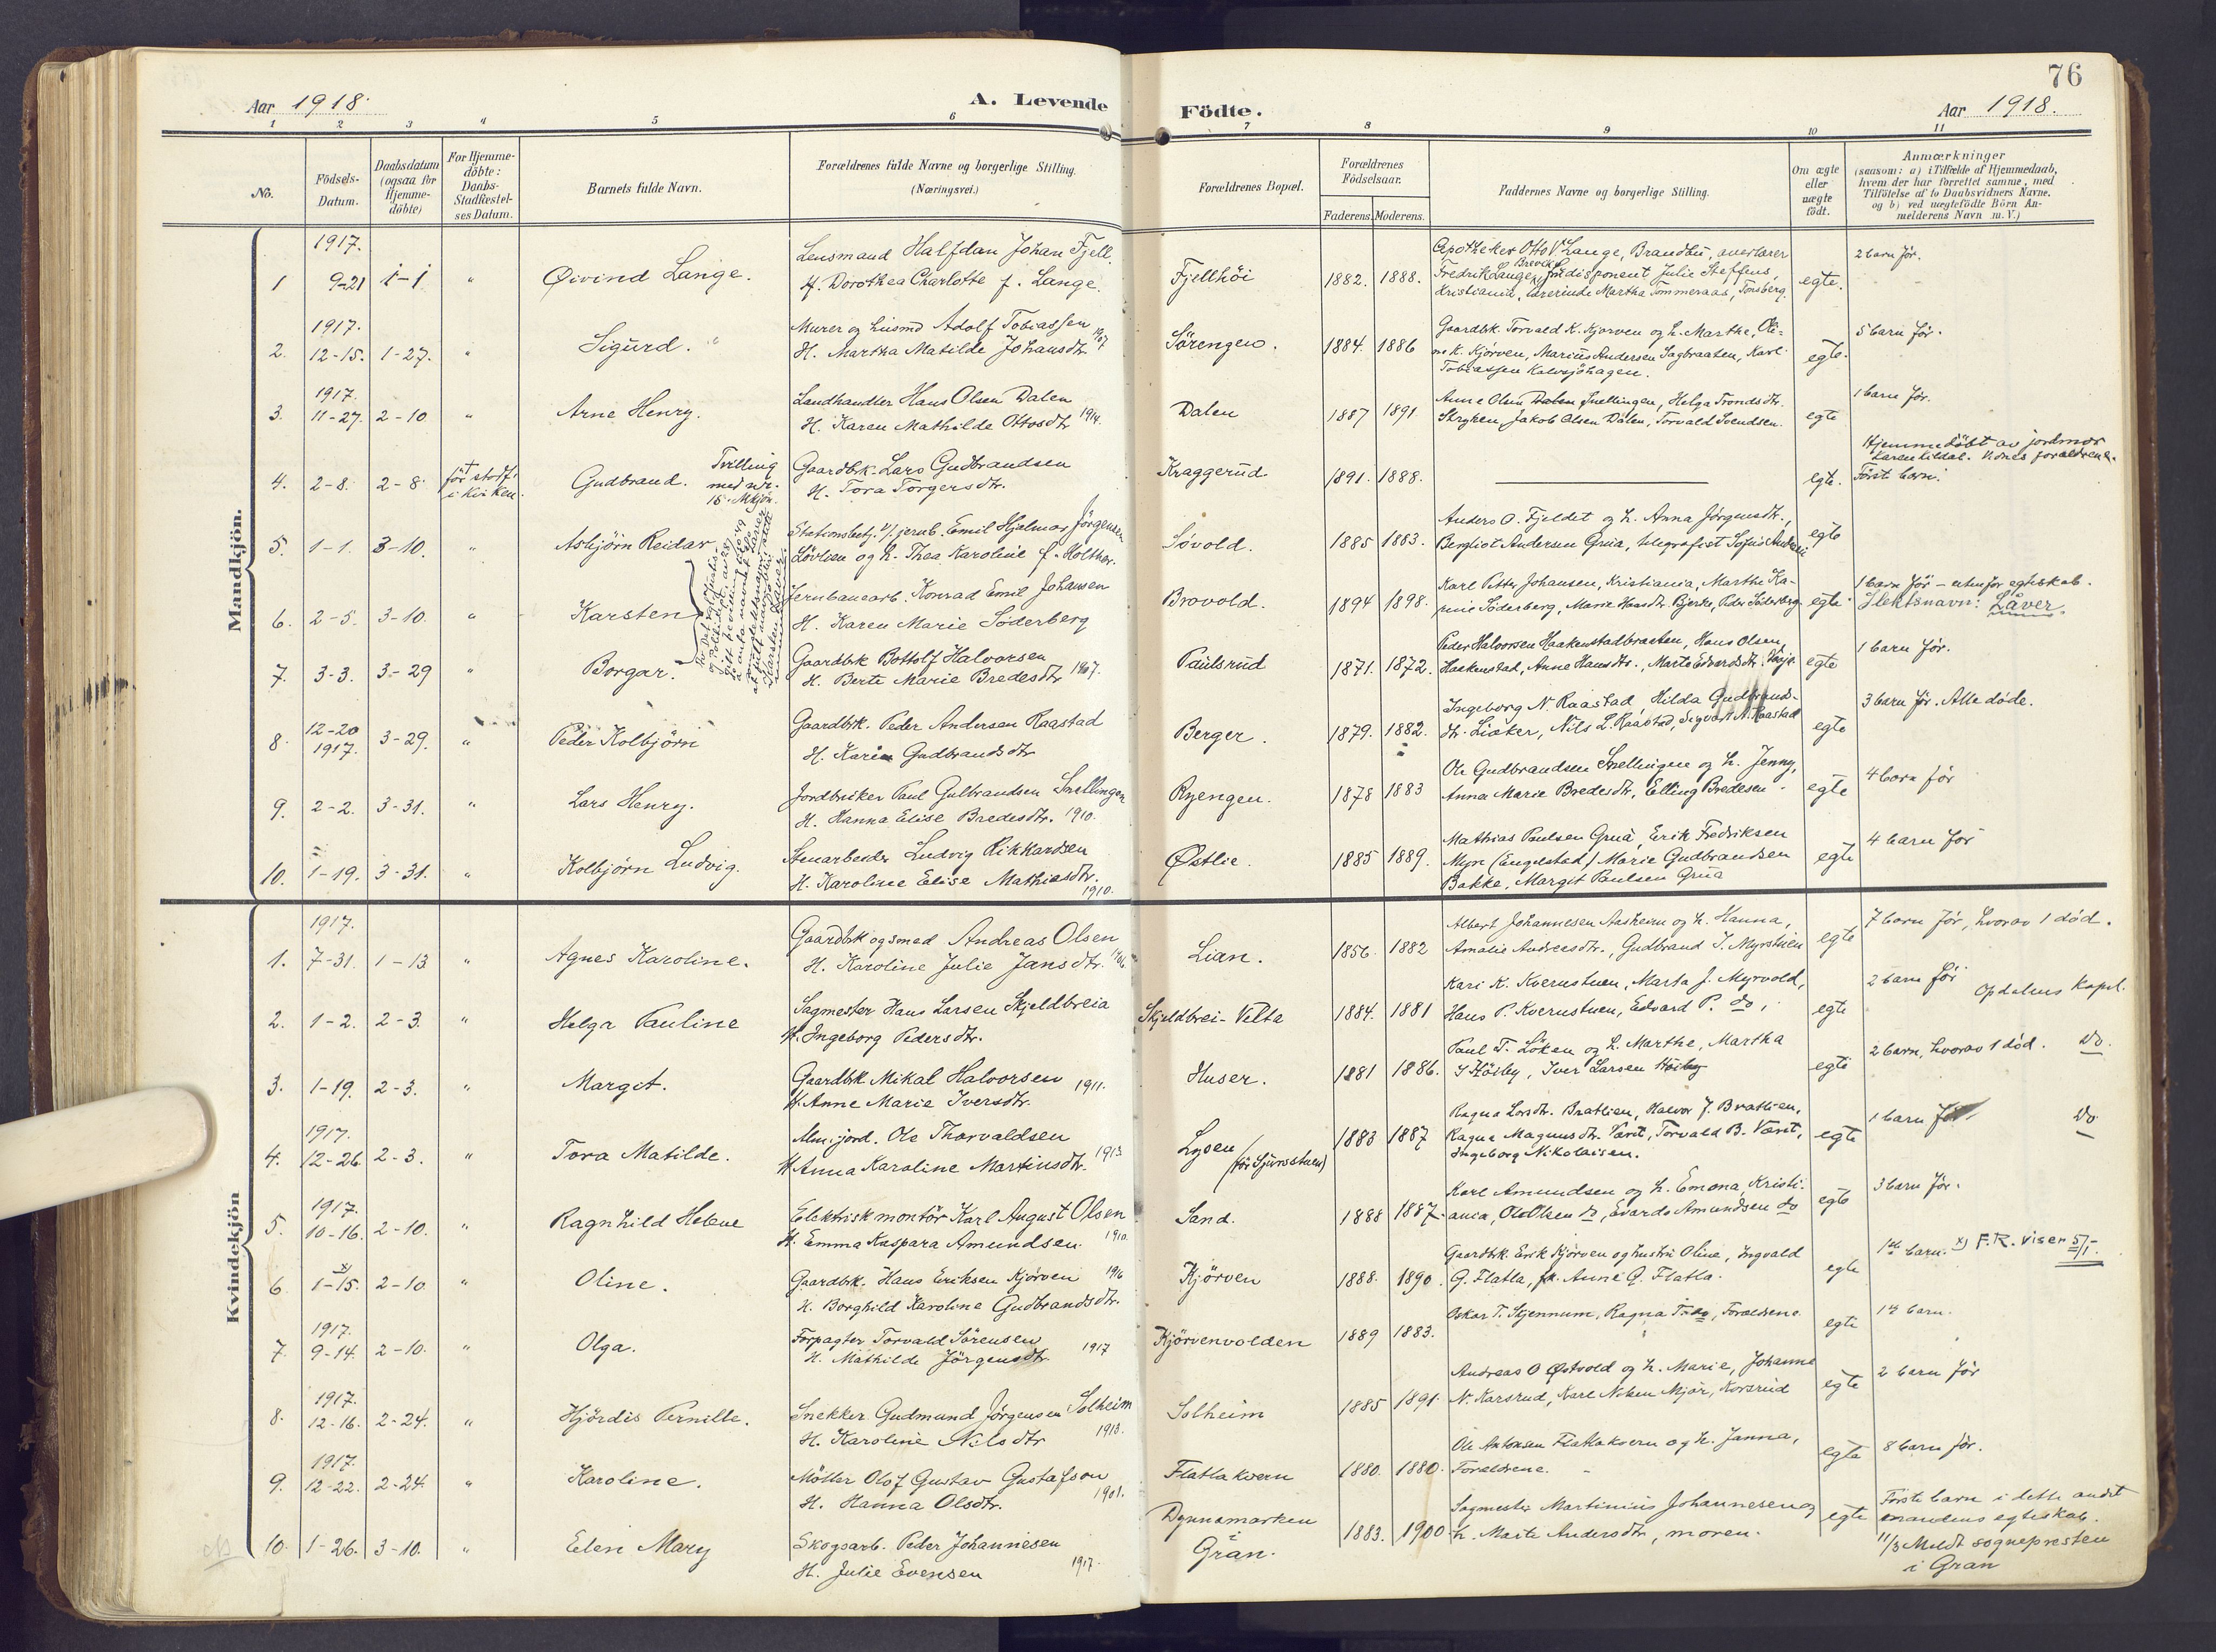 76
Aar 1918.
A. Levende
Födte.
Aar 1918.
1 2 3 4 5 6 7 8 9 10 11
No.
Födsels-
Datum.
Daabsdatum
(ogsaa for
Hjemme-
döbte)
For Hjemme-
döbte:
Daabs-
Stadfestel-
ses Datum.
Barnets fulde Navn.
Forældrenes fulde Navne og borgerlige Stilling.
(Næringsvei.)
Forældrenes Bopæl.
Forældrenes
Födselsaar.
Faderens. Moderens.
Faddernes Navne og borgerlige Stilling.
Om ægte
eller
uægte
födt.
Anmærkninger
(saasom: a) i Tilfælde af Hjemmedaab,
hvem der har forrettet samme, med
Tilföielse af to Daabsvidners Navne.
og b) ved uægtefödte Börn An-
melderens Navn m. V.)
Mandkjön.
1
1917.
9-21
1-1
"
Øivind Lange.
Lensmand Halfdan Johan Fjell.
H. Dorothea Charlotte f. Lange.
Fjellhöi
1882. 1888.
Apotheker Otto V. Lange, Brandbu,
Julie Steffens,
Kristiania, Martha Tommeraas, Tönsberg.
egte.
2 barn för.
2.
1917.
12-15.
1-27.
"
Sigurd.
Murer og husmd Adolf Tobiassen
H. Martha Matilde Johansdtr. 1907
Sörengen.
1884. 1886
Gaardbk. Torvald K. Kjörven og h. Marthe, Ole-
ne K. Kjörven, Marius Andersen Sagbraaten, Karl
Tobiassen Kalvsjöhagen.
egte.
5 barn för.
3.
1917.
11-27.
2-10
"
Arne Henry.
Landhandler Hans Olsen Dalen
H. Karen Mathilde Ottosdtr 1914.
Dalen
1887 1891.
Anne Olsen Dalen Snellingen, Helga Trondsdtr.
Stryken, Jakob Olsen Dalen, Torvald Svendsen.
egte
1 barn för.
4.
2-8.
2-8.
för stadf.
i kirken.
Gudbrand.
Tvilling
med nr.
15. Mkjön.
Gaardbk. Lars Gudbrandsen
H. Tora Torgersdtr.
Kraggerud.
1891. 1888.
egte.
Hjemmedöbt av jordmor
Karen Kildal. Vidnes forældrene.
Förste barn.
5.
1-1.
3-10.
"
Asbjörn Reidar
Stationsbetj. v/jernb. Emil Hjelmar Jörgensen
Lövlien og h. Thea Karoline f. Holther.
Sövold.
1885 1883.
Anders O. Fjeldet og h. Anna Jörgensdtr.,
Bergliot Andersen Grua, telegrafist Sofus Andersen
egte
6.
2-5.
3-10.
"
Karsten
Jernbanearb. Konrad Emil Johansen
H. Karen Marie Söderberg
Brovold.
1894 1898.
Karl Petter Johansen, Kristiania, Marthe Ka-
rine Söderberg, Marie Hansdtr. Bjerke, Peder Söderberg
egte
1 barn för - utenfor egteskab.
Slektsnavn: Låver.
7.
3-3.
3-29
"
Borgar.
Gaardbk Bottolf Halvorsen
H. Berte Marie Bredesdtr 1907.
Paulsrud
1871. 1872.
Peder Halvorsen Haakenstadbraaten, Hans Olsen,
Haakenstad, Anne Hansdtr., Marte Edvardsdtr.
egte
1 barn för.
8.
12-20
1917.
3-29.
"
Peder Kolbjörn
Gaardbk. Peder Andersen Raastad
H. Karen Gudbrandsdtr
Berger.
1879. 1882.
Ingeborg N. Raastad, Hilda Gudbrands-
dtr. Lieker, Nils L. Raastad, Sigvart A. Raastad
egte
3 barn för. Alle döde.
9.
2-2.
3-31.
"
Lars Henry.
Jordbruker Paul Gulbrandsen Snellingen
H. Hanna Elise Bredesdtr. 1910.
Ryengen.
1878 1883
Ole Gudbrandsen Snellingen og h. Jenny,
Anna Marie Bredesdtr, Elling Bredesen.
egte
4 barn för
10.
1-19.
3-31.
"
Kolbjörn Ludvig.
Stenarbeider Ludvig Rikkardsen
H. Karoline Elise Mathiasdtr.
1910.
Østlie.
1885 1889.
Mathias Paulsen Grua, Erik Fredriksen
Myre (Engelstad) Marie Gudbrandsen
Bakke, Margit Paulsen Grua
egte
4 barn för
Kvindekjön
1.
1917.
7-31.
1-13
"
Agnes Karoline.
Gaardbk og smed Andreas Olsen
H. Karoline Julie Jansdtr.
Lian.
1856. 1882
Albert Johannesen Aasheim og h. Hanna,
Amalie Andreasdtr., Gudbrand J. Myrstuen
egte
7 barn för, hvorav 1 död.
2.
1-2.
2-3.
"
Helga Pauline
Sagmester Hans Larsen Skjeldbreia
H. Ingeborg Pedersdtr.
Skjeldbrei-Velta
1884. 1881
Kari K. Kvernstuen, Marta J. Myrvold,
Hans P. Kvernstuen, Edvard P. do,
egte
2 barn för
Opdalens kapel.
3.
1-19.
2-3.
"
Margit.
Gaardbk. Mikal Halvorsen 1911.
H. Anne Marie Iversdtr.
Huser.
1881 1886.
Paul T. Löken og h. Marthe, Martha
I Höiby, Iver Larsen Höiby
egte
2 barn, hvorav 1 död. do.
4.
1917.
12-26.
2-3.
"
Tora Matilde.
Alm. jord. Ole Thorvaldsen
H. Anna Karoline Martinsdtr. 1913
Lysen
(för Sjursstuen)
1883 1887
Ragna Larsdtr. Bratlien, Halvor J. Bratlien,
Ragna Magnusdtr. Været, Torvald B. Været,
Ingeborg Nikolaisen.
egte
1 barn för. do
5.
1917.
10-16.
2-10.
"
Ragnhild Helene
Elektrisk montör Karl August Olsen
H. Emma Kaspara Amundsen. 1910.
Sand.
1888 1887.
Karl Amundsen og h. Emona, Kristi-
ania, Ole Olsen do, Evarda Amundsen do
egte
3 barn för.
6
x)
1-15.
2-10
"
Oline.
Gaardbk. Hans Eriksen Kjörven 1916
H. Borghild Karoline Gudbrandsdtr.
Kjörven
1888. 1890.
Gaardbk. Erik Kjörven og hustru Oline, Ingvald
G. Flatla, fk. Anne G. Flatla.
egte
1ste barn. x) F.R. viser 5/1.
7.
1917.
9-14.
2-10.
"
Olga.
Forpagter Torvald Sörensen
H. Mathilde Jörgensdtr. 1917
Kjörvenvolden
1889 1883.
Oskar T. Skjennum, Ragna T. do, Forældrene
egte
1ste barn.
8.
1917.
12-16.
2-24.
"
Hjördis Pernille.
Snekker Gudmund Jörgensen Solheim
H. Karoline Nilsdtr 1913.
Solheim
1885 1891.
Andreas O Østvold og h. Marie, Johanne
N. Karsrud, Karl Nilsen Mjör, Korsrud
egte
2 barn för
9.
1917.
12-22.
2-24.
"
Karoline.
Möller Olof Gustav Gustafson
H. Hanna Olsdtr. 1901.
Flatlakvern
1880. 1880.
Ole Antonsen Flatlakvern og h. Janna,
Forældrene.
egte
8 barn för.
10.
1-26.
3-10.
"
Elen Mary
Skogsarb. Peder Johannesen
H. Julie Evensen 1917.
Dynnamarken
i
Gran.
1883. 1900
Sagmester Martinius Johannesen og
h. Marte Andersdtr, moren.
egte
Förste barn i dette andet
mandens egteskab.
11/3 Meldt sognepresten
i Gran